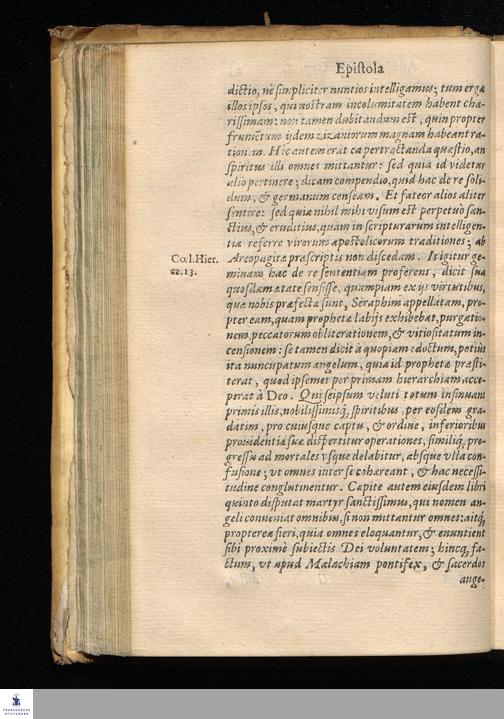 Epistola
dictio, nè simpliciter nuntios intelligamus; tum ergà
illos ipsos, qui nostram incolumitatem habent cha-
rissimam: non tamen dubitandum est, quin propter
frumẽtum ijdem zizaniorum magnam habeant ra-
tionem. Hic autem erat ea pertractanda quæstio, an
spiritus illi omnes mittantur: sed quia id videtur
aliò pertinere; dicam compendio, quid hac de re soli-
dum, & germanum censeam. Et fateor alios aliter
sentire: sed quia nihil mihi visum est perpetuò san-
ctius, & eruditius, quàm in scripturarum intelligen-
tia referre virorum apostolicorum traditiones; ab
Areopagitæ præscriptis non discedam. Is igitur ge-
Cœl. Hier.
ca. 13.
minam hac de re sententiam proferens, dicit sua
quosdam ætate sensisse, quampiam ex ijs virtutibus,
quæ nobis præfectæ sunt, Seraphim appellatam, pro-
pter eam, quam prophetæ labijs exhibebat, purgatio-
nem, peccatorum obliterationem, & vitiositatum in-
censionem: se tamen dicit à quopiam edoctum, potiùs
ita nuncupatum angelum, quia id prophetæ præsti-
terat, quod ipsemet per primam hierarchiam acce-
perat à Deo. Qui seipsum veluti totum insinuans
primis illis, nobilissimisq́; spiritibus, per eosdem gra-
datim, pro cuiusque captu, & ordine, inferioribus
prouidentiæ suæ dispertitur operationes, similiq́; pro-
gressu ad mortales vsque delabitur, absque vlla con-
fusione; vt omnes inter se cohæreant, & hac necessi-
tudine conglutinentur. Capite autem eiusdem libri
quinto disputat martyr sanctissimus, qui nomen an-
geli conueniat omnibus, si non mittantur omnes: aitq́;
propterea fieri, quia omnes eloquantur, & enuntient
sibi proximè subiectis Dei voluntatem; hincq́; fa-
ctum, vt apud Malachiam pontifex, & sacerdos
ange-